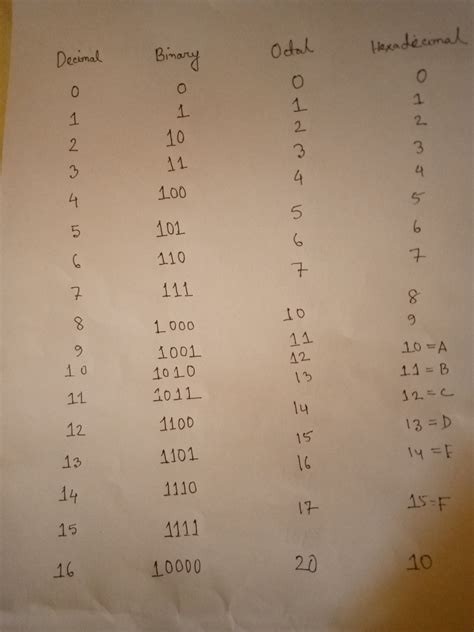 Decimal Binary Octal Hexadecimal
0 0 0 0
1 1 1 1
2 10 2 2
3 11 3 3
4 100 4 4
5 101 5 5
6 110 6 6
7 111 7 7
8 1000 10 8
9 1001 11 9
10 1010 12 10=A
11 1011 13 11=B
12 1100 14 12=C
13 1101 15 13=D
14 1110 16 14=E
15 1111 17 15=F
16 10000 20 10